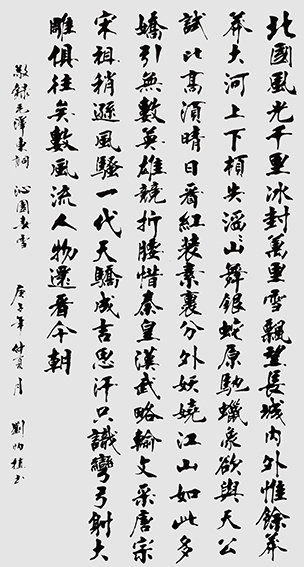 北國風光千里冰封萬里雪飄望長城內外惟餘莽
莽大河上下頓失滔〻山舞銀蛇原馳蠟象欲與天公
試比高須晴日看紅裝素裹分外妖嬈江山如此多
嬌引無數英雄競折腰惜秦皇漢武略輸文采唐宗
宋祖稍遜風騷一代天驕成吉思汗只識彎弓射大
雕俱往矣數風流人物還看今朝
敬錄毛澤東詞 沁園春雪 庚子年仲夏月 劉書